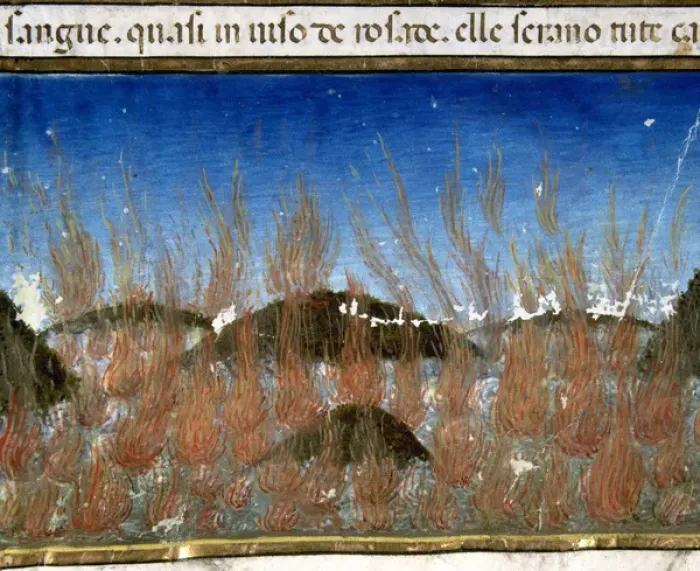 sangue. quasi in uiso de rosade. elle serano tute ca